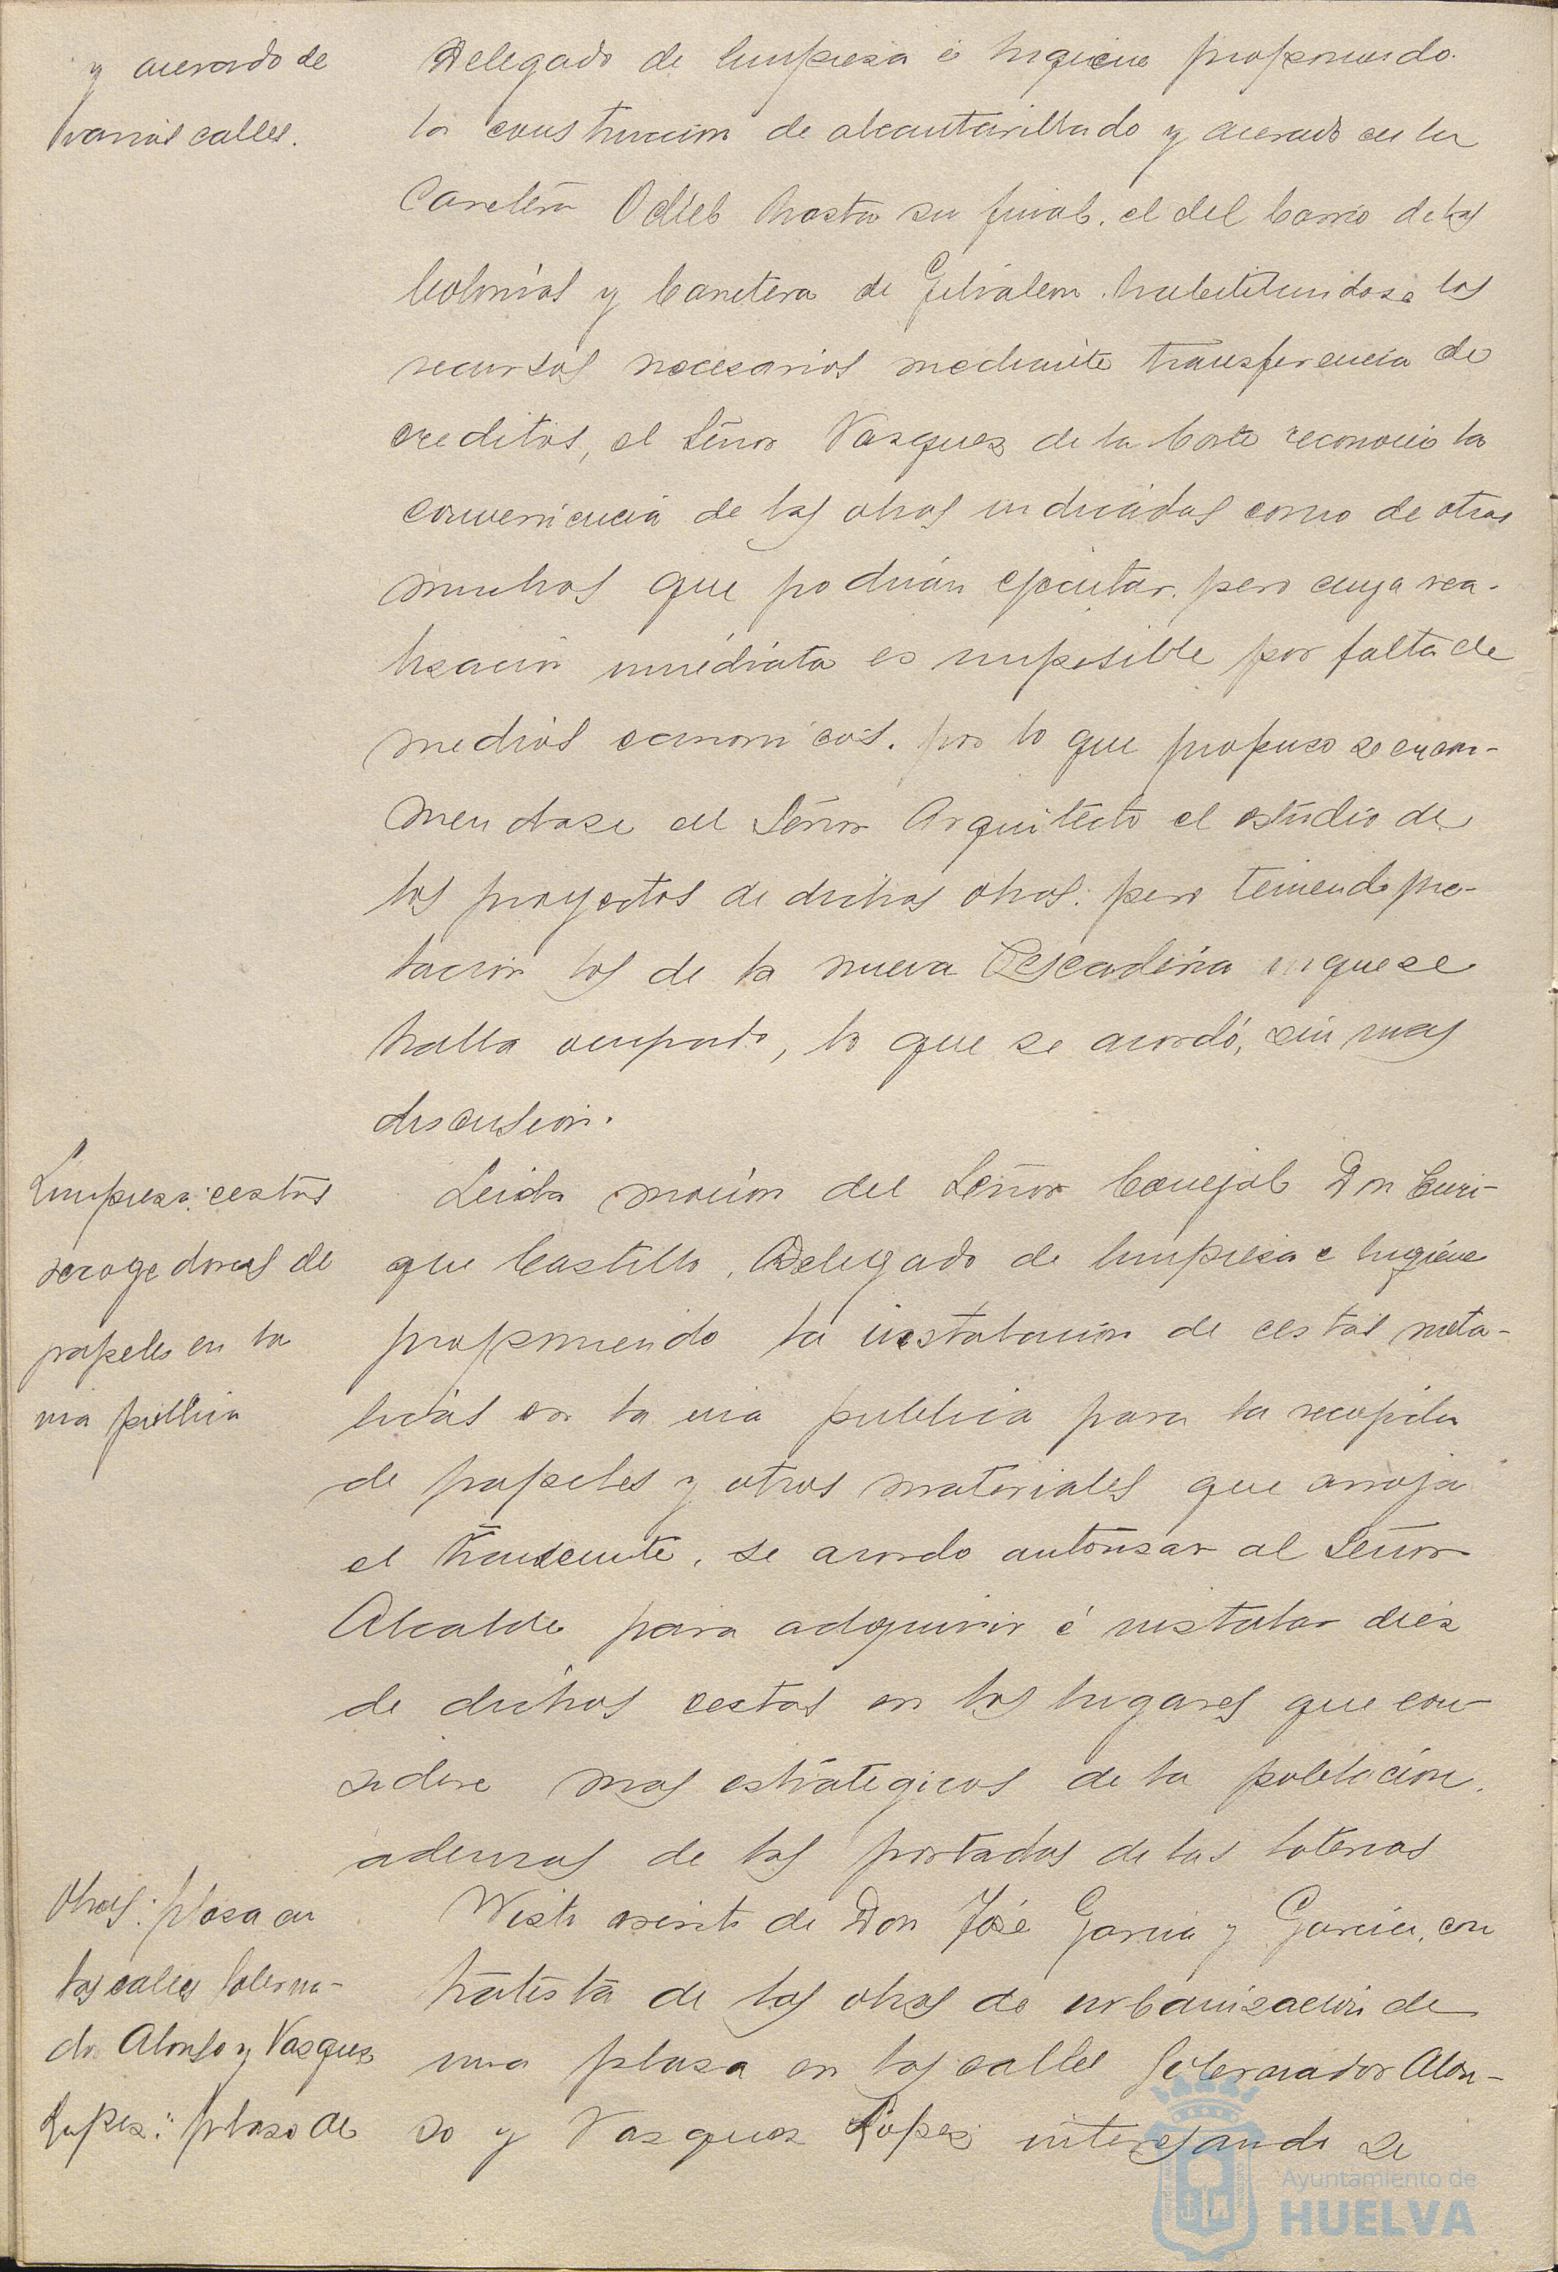 y acerado de
varias calles.
Delegado de limpieza é higiene proponiendo
la construcción de alcantarillado y acerado en la
Carretera Odiel hasta su final, el del barrio de las
Colonias y Carretera de Gibraleon, habilitandose los
recursos necesarios mediante transferencia de
creditos, el Señor Vazquez de la Corte reconoció la
conveniencia de las obras indicadas como de otras
muchas que podrian ejecutar, pero cuya rea-
lización inmediata es imposible por falta de
medios economicos, por lo que propuso se enco-
mendase al Señor Arquitecto el estudio de
los proyectos de dichas obras, pero teniendo pre-
lacion los de la nueva Pescaderia en que se
halla ocupado, lo que se acordó, sin mas
discusion.
Limpieza: cestas
recogedoras de
papeles en la
via publica
Leida mocion del Señor Concejal Don Enri-
que Castillo, Delegado de limpieza e higiene
proponiendo la instalacion de cestas meta-
licas en la via publica para la recogida
de papeles y otros materiales que arroja
el transeunte, se acordo autorizar al Señor
Alcalde para adquirir é instalar diez
de dichas cestas en los lugares que con-
sidere mas estrategicos de la población,
ademas de las portadas de las loterias
Obras: plaza en
las calles Goberna-
dor Alonso y Vazquez
Lopez: plazo de
Visto escrito de Don José Garcia y Garcia, con
tratista de las obras de urbanizacion de
una plaza en las calles Gobernador Alon-
so y Vazquez Lopez interesando se
Ayuntamiento de
HUELVA